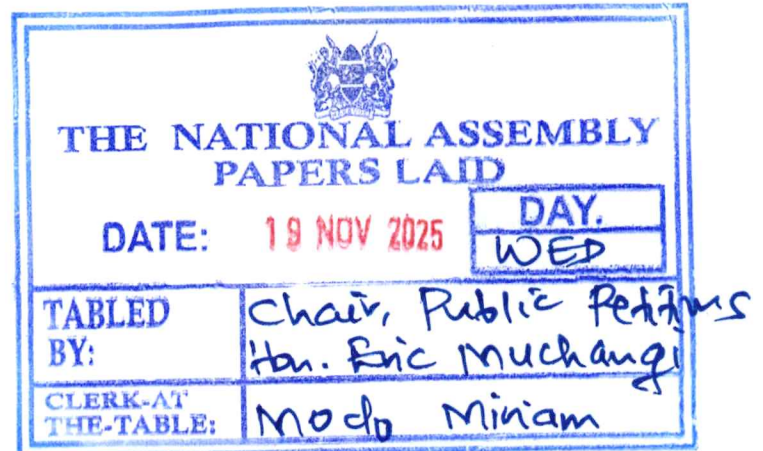 THE NATIONAL ASSEMBLY
PAPERS LAID
DATE: 19 NOV 2025
DAY.
WED
TABLED BY:
Chair, Public Petitions
Hon. Eric Muchangi
CLERK-AT THE-TABLE:
Modo Miriam